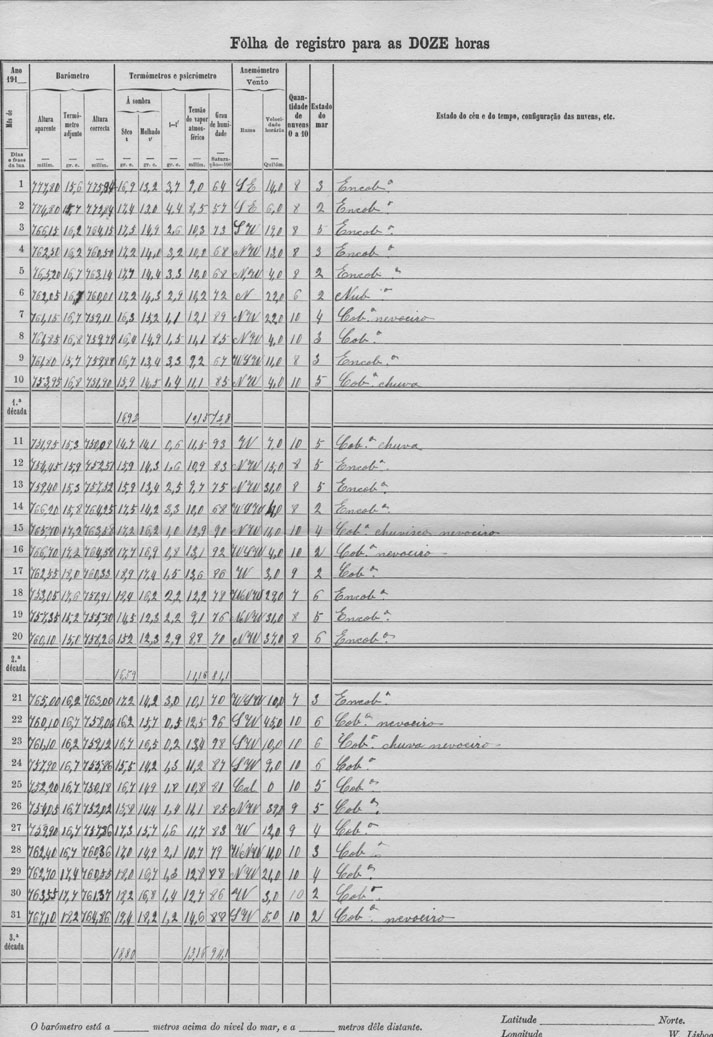 Fôlha de registro para as DOZE horas
Ano 191__ Barómetro Termómetros e psicrómetro Anemómetro — Vento Quantidade de nuvens 0 a 10 Estado do mar Estado do céu e do tempo, configuração das nuvens, etc.
Mês de Altura aparente Termómetro adjunto Altura correcta À sombra t—t' Tensão do vapor atmosférica Grau de humidade Rumo Velocidade horária
Sêco t Molhado t'
Dias e fases da lua milím. gr. c. milím. gr. c. gr. c. gr. c. milím. Saturação=100 Quilóm.
1 777,80 15,6 16,9 13,2 3,7 9,0 64 SE 14,0 8 3 Encob.ª
2 774,80 17,4 13,0 4,4 8,5 57 SE 6,0 8 2 Encob.ª
3 766,15 16,2 764,15 17,5 14,9 2,6 10,3 73 SW 8 5 Encob.ª
4 762,50 16,2 760,50 17,2 14,0 3,2 10,0 68 NW 13,0 8 3 Encob.ª
5 765,20 16,7 763,14 17,7 14,4 3,3 10,0 68 NW 4,0 8 2 Encob.ª
6 762,05 760,01 17,2 14,3 2,9 10,2 72 N 22,0 6 2 Nub.º
7 16,7 16,3 15,2 1,1 12,1 89 NW 22,0 10 4 Cob.º nevoeiro
8 16,8 14,9 1,5 11,1 85 NW 4,0 10 3 Cob.º
9 761,80 15,7 16,7 13,4 3,3 9,2 67 WSW 11,0 8 3 Encob.ª
10 753,95 16,8 751,90 15,9 14,5 1,4 11,1 85 NW 4,0 10 5 Cob.º chuva
1.ª década 1692 10,15 73,8
11 751,95 15,3 750,09 14,7 14,1 0,6 11,5 93 W 7,0 10 5 Cob.º chuva
12 754,45 15,9 752,51 15,9 14,3 1,6 10,9 83 NW 15,0 8 5 Encob.ª
13 759,40 15,3 757,52 15,9 13,4 2,5 9,7 75 NW 31,0 8 5 Encob.ª
14 766,90 15,8 764,95 17,5 14,2 3,3 10,0 68 WSW 8 2 Encob.ª
15 765,70 17,2 763,58 17,2 16,2 1,0 12,9 90 NW 14,0 10 4 Cob.º chuvisco nevoeiro
16 766,70 17,2 764,59 17,7 16,9 0,8 13,1 92 WSW 4,0 10 2 Cob.º nevoeiro
17 762,55 18,0 760,33 18,9 17,4 1,5 13,6 86 W 3,0 9 2 Cob.º
18 753,05 17,6 750,91 18,4 16,2 2,2 12,2 78 WNW 29,0 7 6 Encob.ª
19 757,35 15,2 755,50 14,5 12,3 2,2 9,1 76 NNW 31,0 8 5 Encob.ª
20 760,10 15,0 758,26 15,2 12,3 2,9 8,8 70 NW 37,0 8 6 Encob.ª
2.ª década 1659 11,18 81,1
21 765,00 16,2 763,00 17,2 14,2 3,0 10,1 70 WSW 10,0 7 3 Encob.ª
22 760,10 16,7 758,06 16,2 15,7 0,5 12,5 96 SW 45,0 10 6 Cob.º nevoeiro
23 761,10 16,2 759,12 16,7 16,5 0,2 13,4 98 SW 10,0 10 6 Cob.º chuva nevoeiro
24 757,90 16,7 755,86 15,5 14,2 1,3 11,2 87 SW 9,0 10 6 Cob.º
25 752,20 16,7 750,18 16,7 14,9 1,8 10,8 81 Cal 0 10 5 Cob.º
26 754,05 16,7 752,02 15,8 14,4 1,4 11,1 85 NW 37,0 9 5 Cob.º
27 759,90 16,7 757,86 17,3 15,7 1,6 11,7 83 W 12,0 9 4 Cob.º
28 762,40 16,7 760,36 17,0 14,9 2,1 10,7 79 WNW 11,0 10 3 Cob.º
29 762,70 17,4 760,55 18,0 16,7 1,3 12,8 88 NW 21,0 10 4 Cob.º
30 763,55 17,7 761,37 18,2 16,8 1,4 12,7 86 W 3,0 10 2 Cob.º
31 767,10 18,2 764,86 19,4 18,2 1,2 14,6 88 SW 5,0 10 2 Cob.º nevoeiro
3.ª década 1880
O barómetro está a ______ metros acima do nível do mar, e a ______ metros dêle distante.
Latitude ______ Norte.
Longitude ______ W. Lisboa